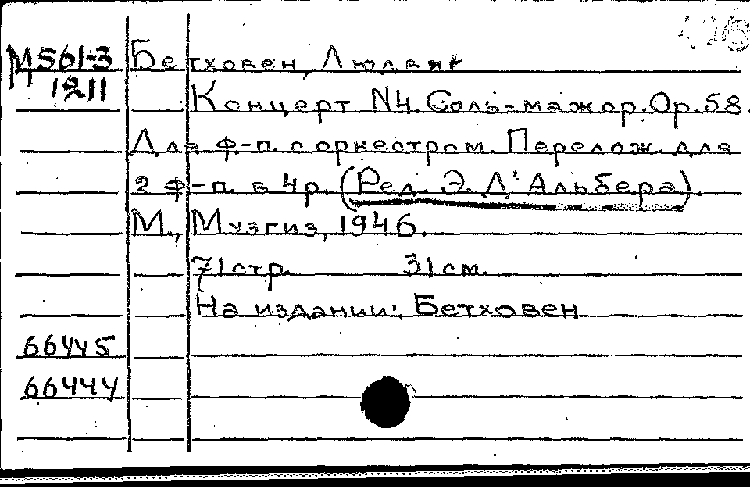 М561-3 Бетховен, Людвиг
1211 Концерт N4. Соль-мажор. Ор. 58.
Для ф-п. с оркестром. Перелож. для
2 ф-п. в 4 р. (Ред. Э. Д'Альбера).
М., Музгиз, 1946.
71 стр. 31 см.
На издании: Бетховен
66445
66444